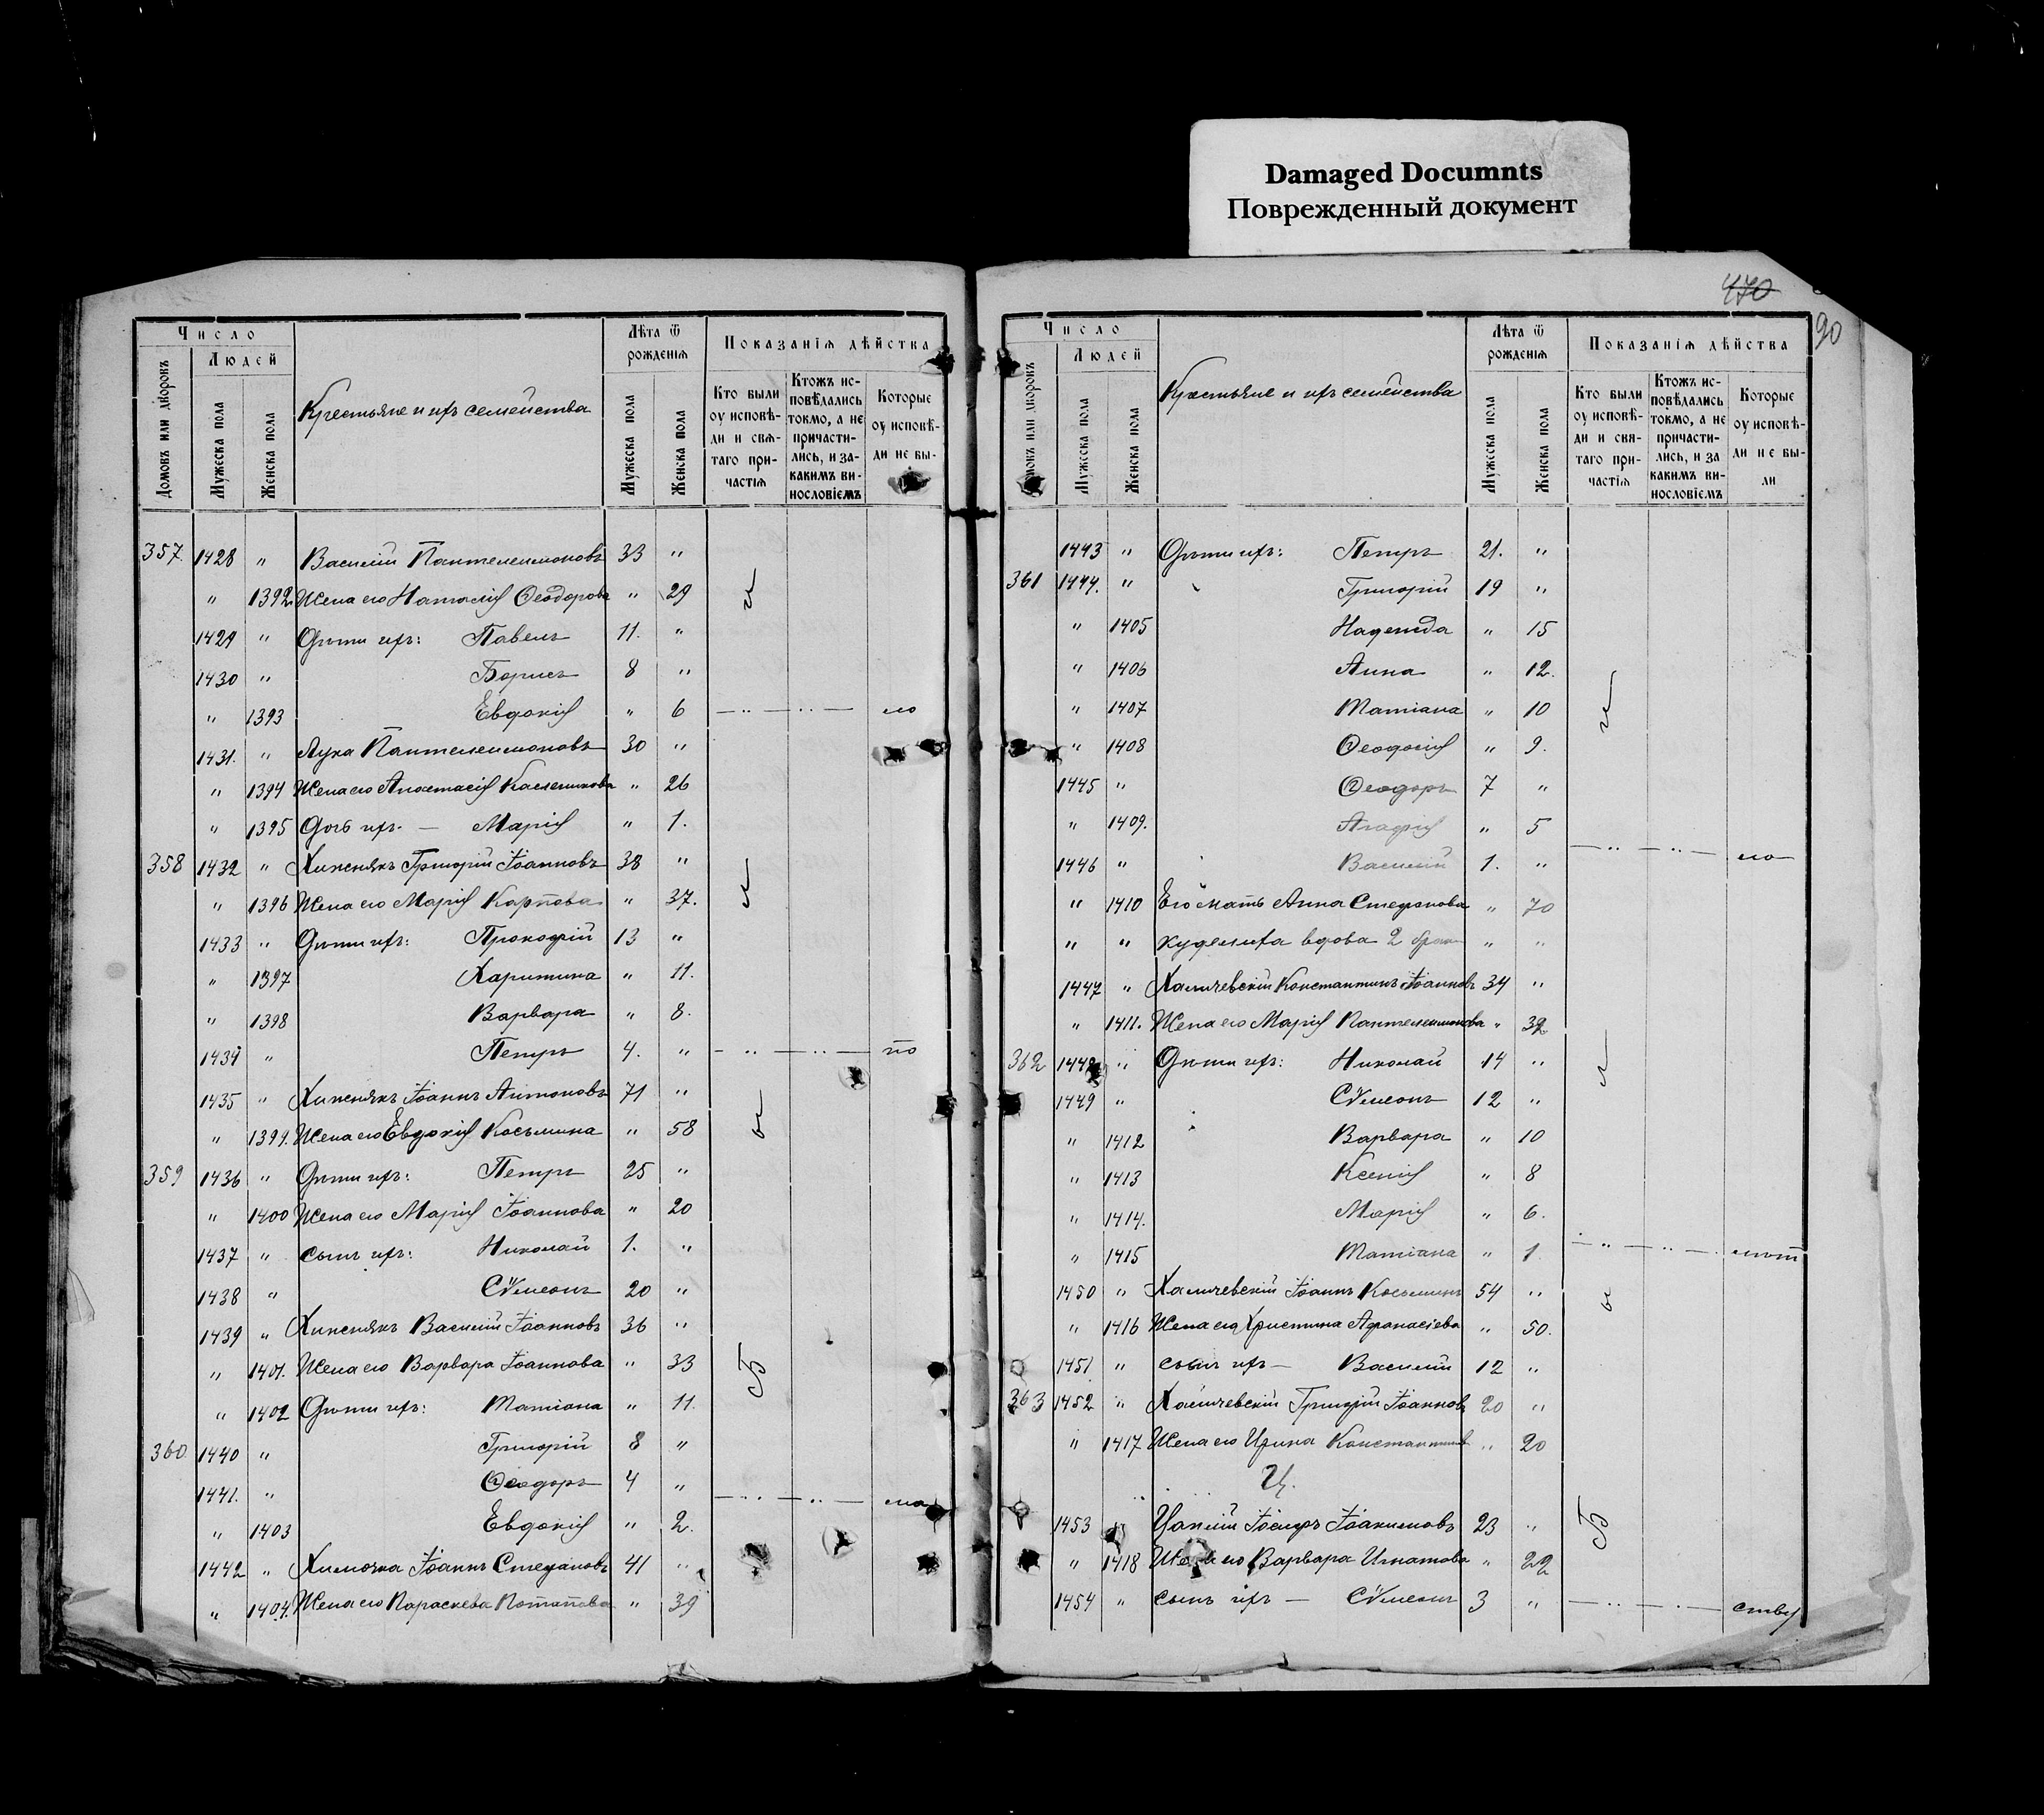 Damaged Documnts
Поврежденный документ
470
90
Число
Людей
Домовъ или дворовъ
Мужеска пола
Женска пола
Крестьяне и ихъ семейства
Лѣта ѿ рожденія
Мужеска пола
Женска пола
Показанія дѣйства
Кто были оу исповѣди и свѧтаго причастіѧ
Ктожъ исповѣдались токмо, а не причастились, и за какимъ винословіемъ
Которые оу исповѣди не бы-
357 1428 " Василій Пантелеимоновъ 33 "
" 1392 Жена его Наталія Ѳеодорова " 29
1429 " Дѣти ихъ: Павелъ 11. "
1430 " Борисъ 8 "
" 1393 Евдокія " 6 — " — " — ло
1431. " Лука Пантелеимоновъ 30 "
" 1394 Жена его Анастасія " 26
" 1395 Дочь ихъ — Марія " 1.
358 1432 " Хижнякъ Григорій Іоанновъ 38 "
" 1396 Жена его Марія Карпова " 37.
1433 " Дѣти ихъ: Прокофій 13 "
" 1397 Харитина " 11.
" 1398 Варвара " 8.
1434 " Петръ 4. " — " — " — по
1435 " Хижнякъ Іоаннъ Антоновъ 71 "
" 1399. Жена его Евдокія Косьмина " 58
359 1436 " Дѣти ихъ: Петръ 25 "
" 1400 Жена его Марія Іоаннова " 20
1437 " сынъ ихъ: Николай 1. "
1438 " Сѵмеонъ 20 "
1439 " Хижнякъ Василій Іоанновъ 36 "
" 1401. Жена его Варвара Іоаннова " 33
" 1402 Дѣти ихъ: Татіана " 11.
360 1440 " Григорій 8 "
1441. " Ѳеодоръ 4 " — " — " —
" 1403 Евдокія " 2.
1442 " Химочка Іоаннъ Стефановъ 41 "
" 1404. Жена его Параскева Потапова " 39
Число
Людей
Мужеска пола
Женска пола
Крестьяне и ихъ семейства
Лѣта ѿ рожденія
Мужеска пола
Женска пола
Показанія дѣйства
Кто были оу исповѣди и свѧтаго причастіѧ
Ктожъ исповѣдались токмо, а не причастились, и за какимъ винословіемъ
Которые оу исповѣди не были
1443 " Дѣти ихъ: Петръ 21. "
361 1444. " Григорій 19 "
" 1405 Надежда " 15
" 1406 Анна " 12.
" 1407 Татіана " 10
" 1408 Ѳеодосія " 9.
1445 " Ѳеодоръ 7 "
" 1409. Агафія " 5
1446 " Василій 1. " — " — " — ло
" 1410 Его мать Анна Стефанова " 70
" " вдова 2 брака " "
1447 " Константинъ Іоанновъ 34 "
" 1411. Жена его Марія Пантелеимонова " 32
362 1448 " Дѣти ихъ: Николай 14 "
1449 " Сѵмеонъ 12 "
" 1412 Варвара " 10
" 1413 Ксенія " 8
" 1414. Марія " 6.
" 1415 Татіана " 1 — " — " —
1450 " Іоаннъ Косьминъ 54 "
" 1416 Жена его Христина Афанасіева " 50.
1451 " сынъ ихъ — Василій 12 "
363 1452 " Григорій Іоанновъ 20 "
" 1417 Жена его Ирина Константинова " 20
Ц.
1453 " Іосифъ Іоакимовъ 23 "
" 1418 Жена его Варвара Игнатова " 22
1454 " сынъ ихъ — Сѵмеонъ 3 " — " — " — ству